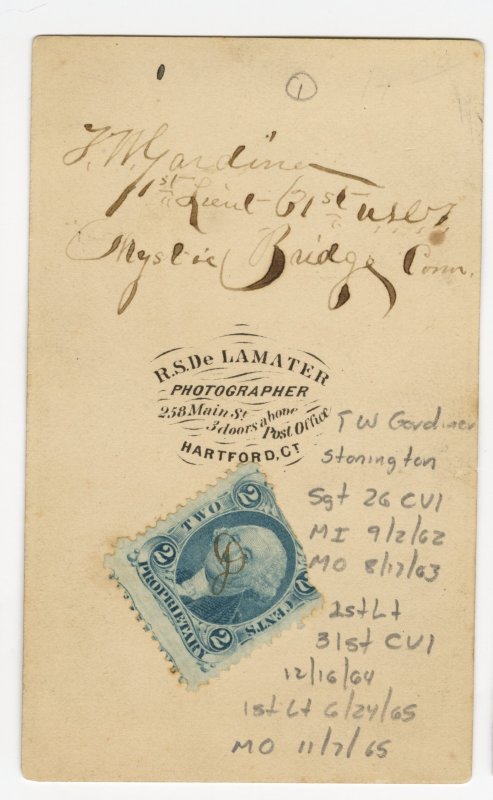 1
T. W. Gardiner
1st Lieut 31st U.S.C.T.
Mystic Bridge Conn.
R.S. De LAMATER
PHOTOGRAPHER
258 Main St
3 doors above Post Office
HARTFORD, CT
T W Gardiner
Stonington
Sgt 26 CVI
MI 9/2/62
MO 8/17/63
2st Lt
31st CVI
12/16/64
1st Lt 6/24/65
MO 11/7/65
2 TWO 2
PROPRIETARY
CENTS.
2 2